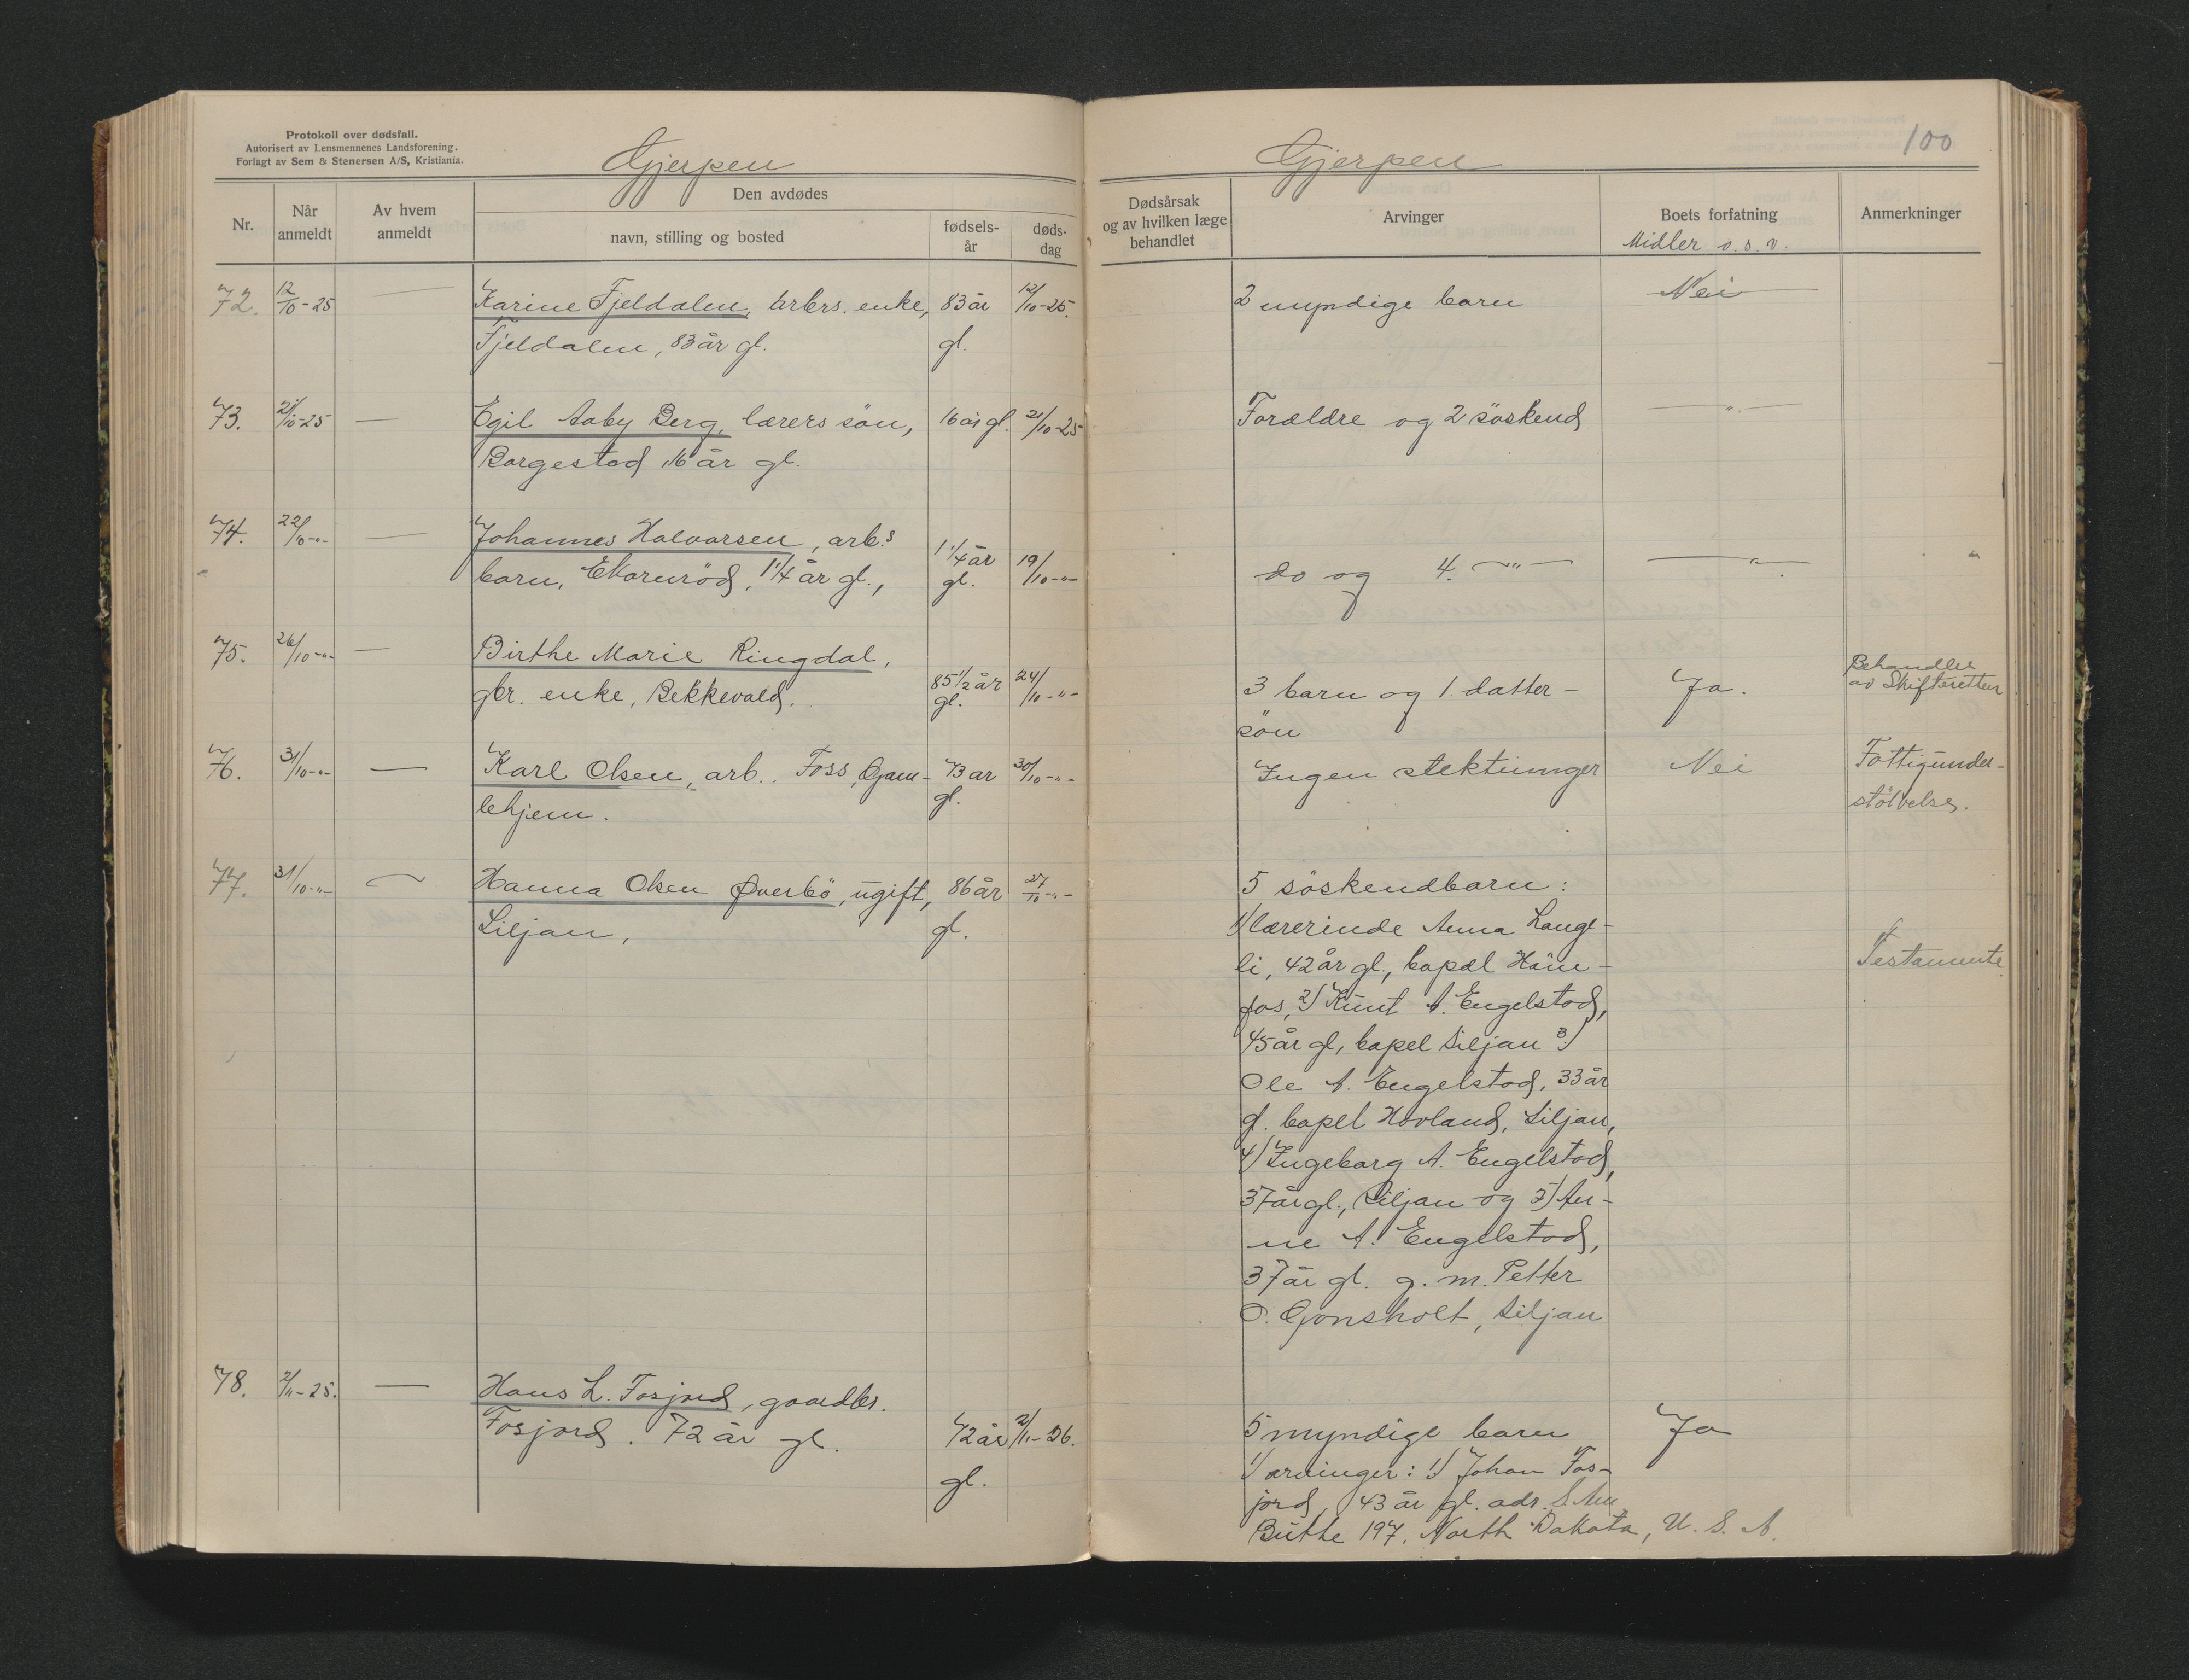 Protokoll over dødsfall.
Autorisert av Lensmennenes Landsforening.
Forlagt av Sem & Stenersen A/S, Kristiania.
Gjerpen
Nr.
Når anmeldt
Av hvem anmeldt
Den avdødes
navn, stilling og bosted
fødselsår
døds-dag
72. 12/10-25 — Karine Fjeldalen, arbrs. enke, 83 år 12/10-25.
Fjeldalen, 83 år gl. gl.
73. 21/10-25 — Egil Aaby Berg, lærers sön, 16 år gl. 21/10-25
Borgestad, 16 år gl.
74. 22/10-"- — Johannes Halvorsen, arb.s
barn, Ekornröd, 1 1/4 år gl., 1 1/4 år gl. 19/10-"-
75. 26/10-"- — Birthe Marie Ringdal,
gbr. enke, Bekkevald. 85 1/2 år gl. 24/10-"-
76. 31/10-"- — Karl Olsen, arb. Foss, Gam- 73 år 30/10-"-
lehjem. gl.
77. 31/10-"- — Hanna Olsen Øverbö, ugift, 86 år 27/10-"-
Siljan, gl.
78. 2/11-25. — Hans L. Fosjord, gaardbr.
Fosjord. 72 år gl. 72 år 2/11-26.
gl.
Gjerpen
100
Dødsårsak
og av hvilken læge
behandlet
Arvinger
Boets forfatning
Midler o.s.v.
Anmerkninger
2 myndige barn Nei
Forældre og 2 söskend —"—
do og 4. —"— —"—
3 barn og 1. datter- Ja. Behandles
sön av Skifteretten
Ingen slektninger Nei Fattigunder-
støtvelse.
5 söskendbarn:
1) lærerinde Anna Lange-
li, 42 år gl., bopæl Höne-
fos, 2) Knut A. Engelstad, Testamente
45 år gl, bopel Siljan 3)
Ole A. Engelstad, 33 år
gl. bopel Hovland, Siljan,
4) Ingeborg A. Engelstad,
37 år gl., Siljan og 5) An-
ne A. Engelstad,
37 år gl. g. m. Petter
O. Gonsholt, Siljan
5 myndige barn Ja
1) arvinger: 1) Johan Fos-
jord, 43 år gl. adr.
Butte 197. North Dakota, U. S. A.